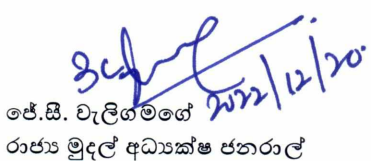 2022/12/20
ජේ.සී. වැලිගමගේ
රාජ්‍ය මුදල් අධ්‍යක්ෂ ජනරාල්